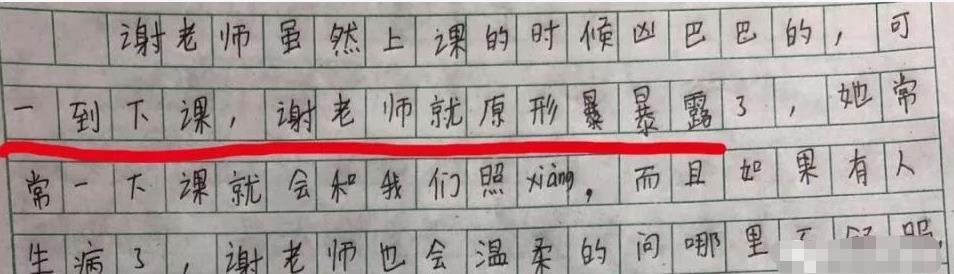 谢老师虽然上课的时候凶巴巴的，可
一到下课，谢老师就原形暴暴露了，她常
常一下课就会和我们照xiàng，而且如果有人
生病了，谢老师也会温柔的问哪里不舒服，